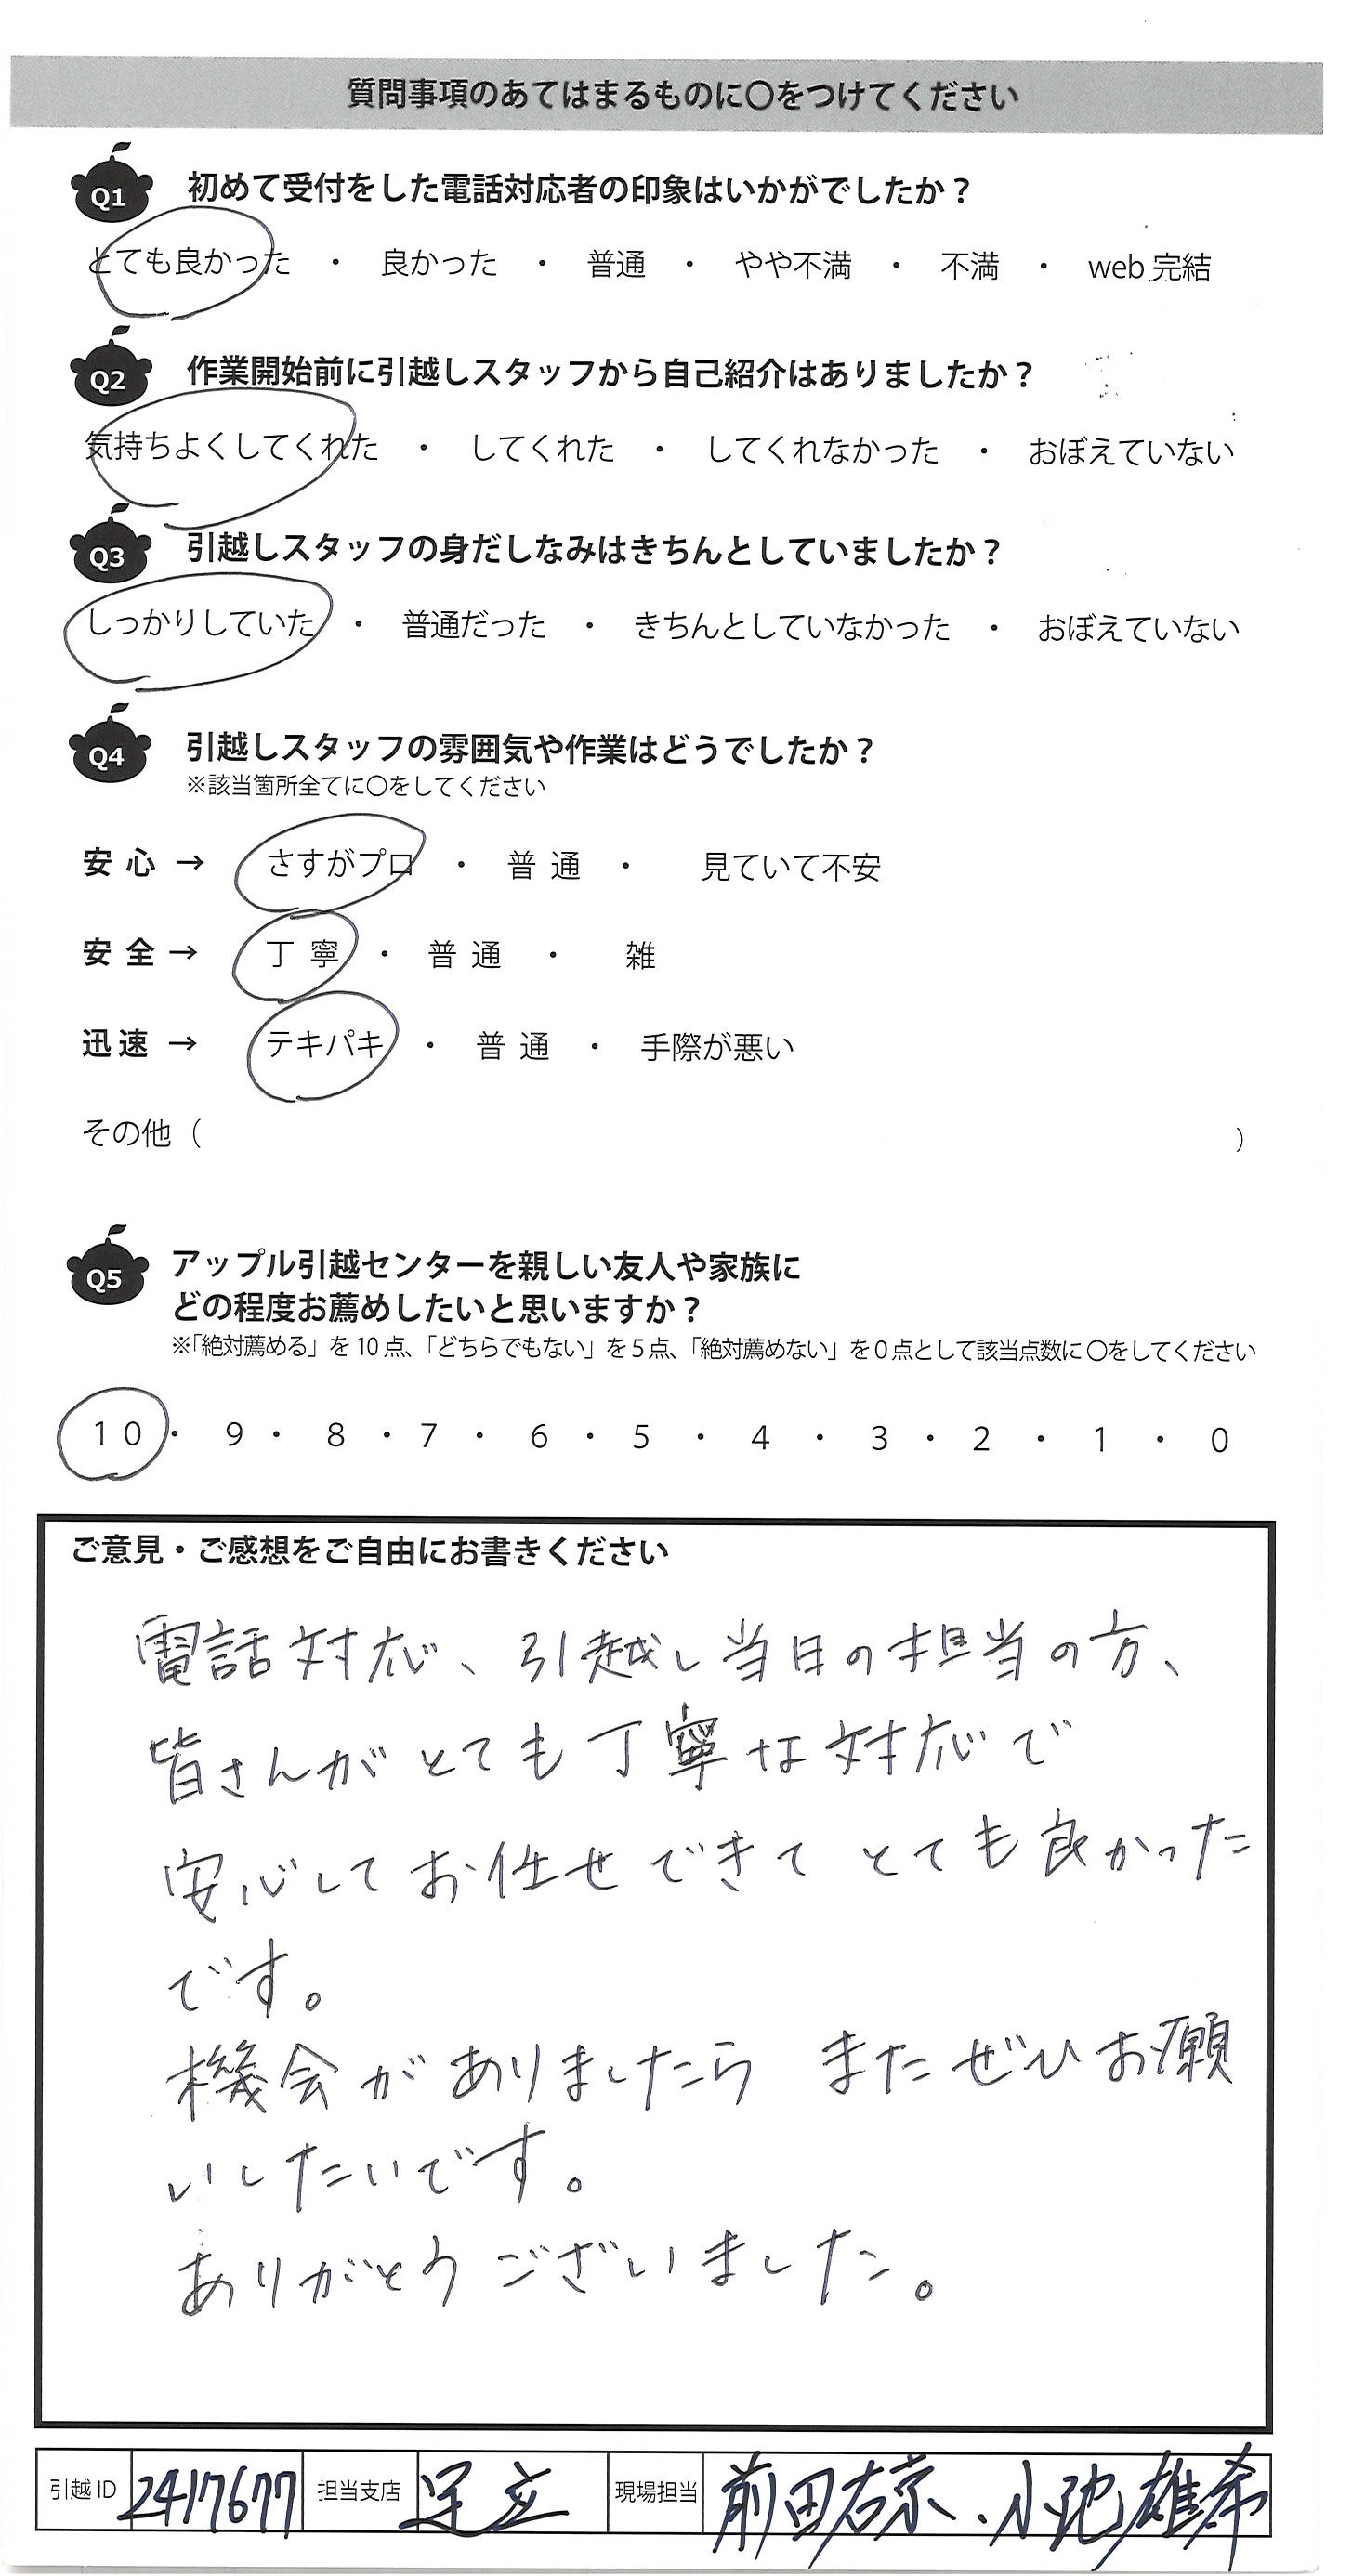 質問事項のあてはまるものに〇をつけてください
Q1 初めて受付をした電話対応者の印象はいかがでしたか？
とても良かった ・ 良かった ・ 普通 ・ やや不満 ・ 不満 ・ web 完結
Q2 作業開始前に引越しスタッフから自己紹介はありましたか？
気持ちよくしてくれた ・ してくれた ・ してくれなかった ・ おぼえていない
Q3 引越しスタッフの身だしなみはきちんとしていましたか？
しっかりしていた ・ 普通だった ・ きちんとしていなかった ・ おぼえていない
Q4 引越しスタッフの雰囲気や作業はどうでしたか？
※該当箇所全てに〇をしてください
安心 → さすがプロ ・ 普通 ・ 見ていて不安
安全 → 丁寧 ・ 普通 ・ 雑
迅速 → テキパキ ・ 普通 ・ 手際が悪い
その他（ ）
Q5 アップル引越センターを親しい友人や家族に
どの程度お薦めしたいと思いますか？
※「絶対薦める」を10点、「どちらでもない」を5点、「絶対薦めない」を0点として該当点数に〇をしてください
10 ・ 9 ・ 8 ・ 7 ・ 6 ・ 5 ・ 4 ・ 3 ・ 2 ・ 1 ・ 0
ご意見・ご感想をご自由にお書きください
電話対応、引越し当日の担当の方、
皆さんがとても丁寧な対応で
安心してお任せできて とても良かった
です。
機会がありましたら またぜひお願
いしたいです。
ありがとうございました。
引越ID 2417677 担当支店 足立 現場担当 前田右京・小池雄希